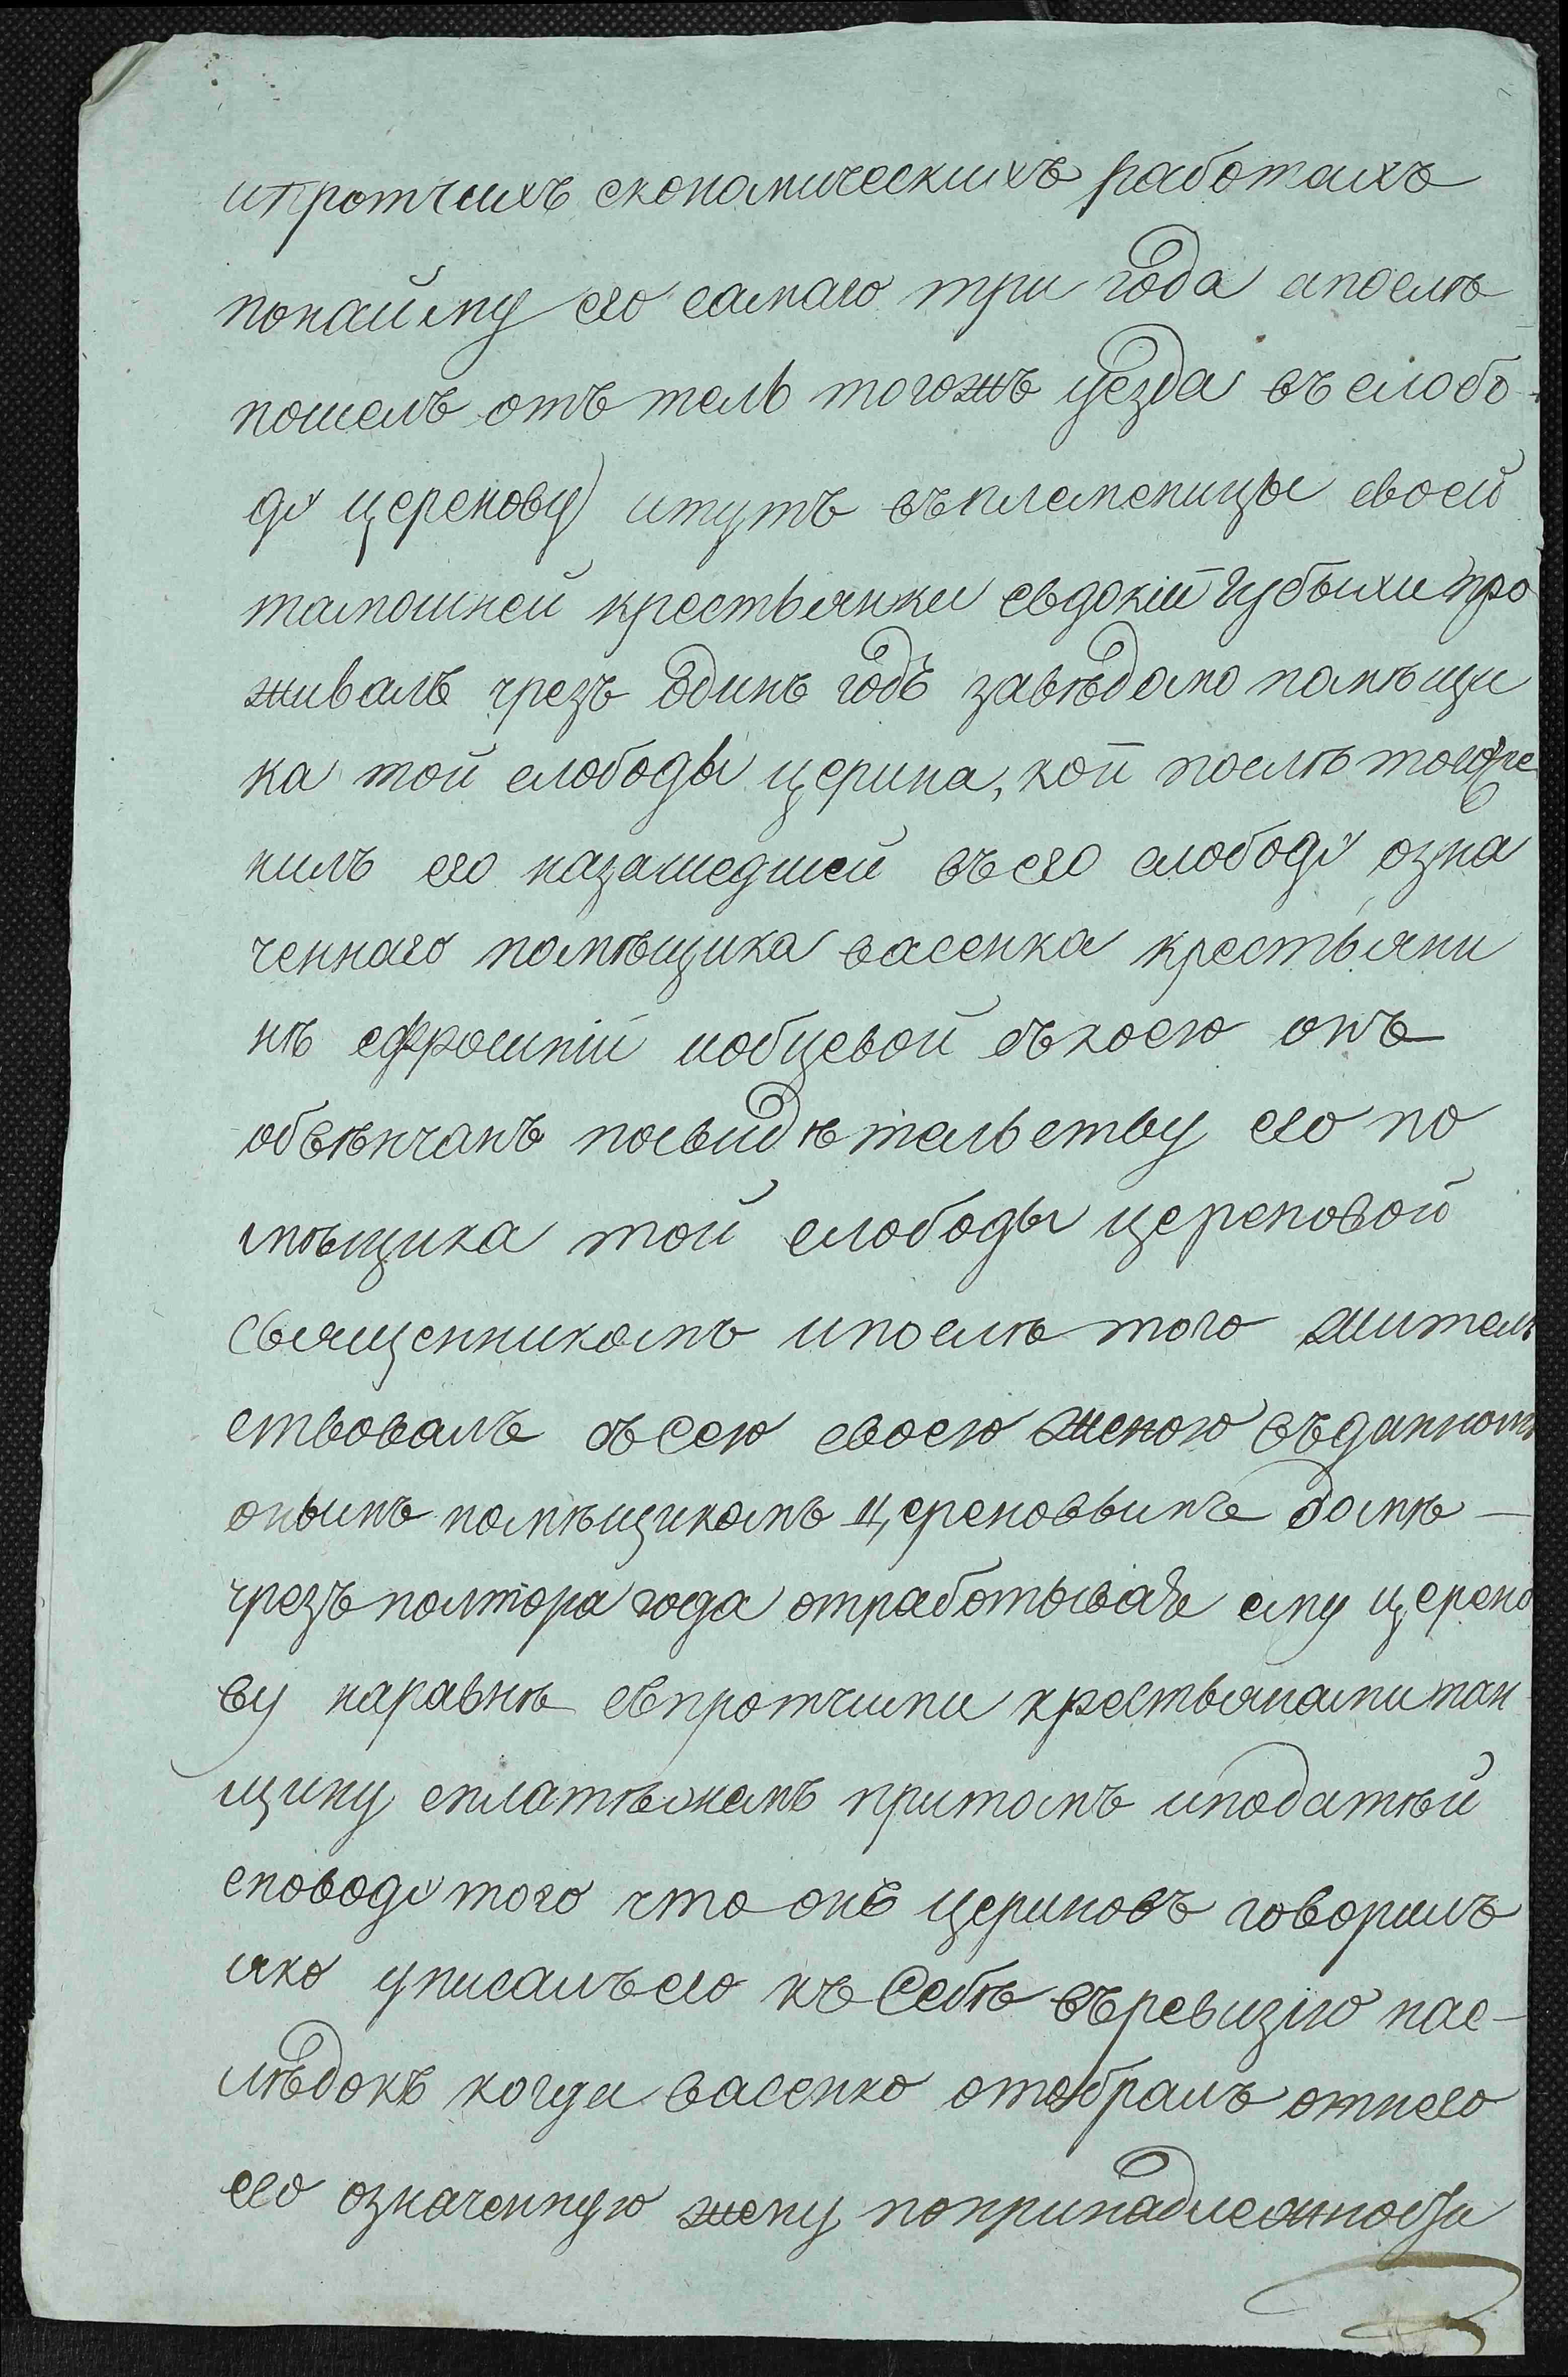 ипротчихъ економическихъ работахъ
понайму его самаго три года апослѣ
пошелъ отъ тель тогожъ уезда въ слобо-
ду церенову итутъ въплеменицы своей
тамошней крестьянки евдокіи губыхи про
живалъ чрезъ одинъ годъ завѣдомо помѣщи
ка той слободы церина, кой послѣ того
нилъ его назашедшей въего слободу озна
ченнаго помѣщика васенка крестьяни
нѣ ефросиніи съкоею онъ
обвѣнчанъ посвидѣтельству его по
мѣщика той слободы береновой
священникомъ ипослѣ того жител
ствовалъ съсею своею женою въданномъ
онымъ помѣщикомъ Цереновымъ домѣ —
чрезъ полтора года отработывалъ ему церено
ву наравнѣ съпротчими крестьянами пан
щину сплатѣжемъ притомъ иподатѣй
споводу того что онъ цериновъ говорилъ
яко уписалъего къ Себѣ въревизію нас-
лѣдокъ когда васенко отобралъ отнего
его означенную жену попринадлежности